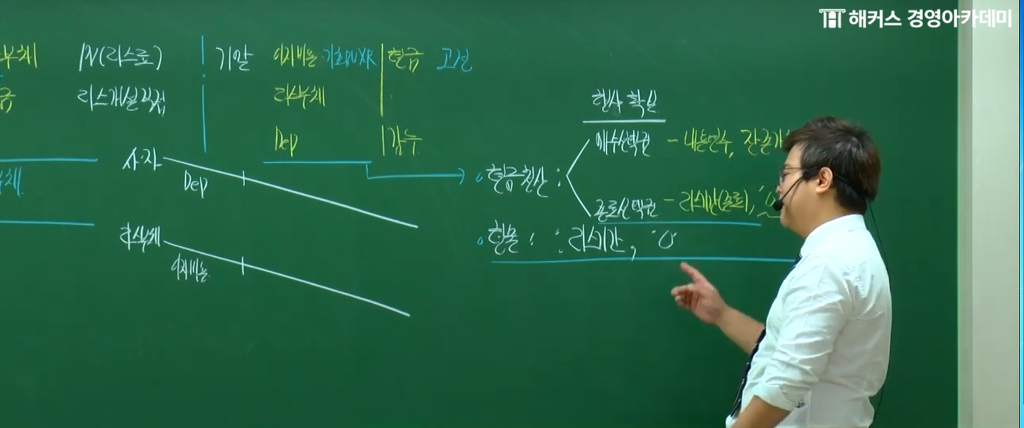 해커스 경영아카데미
부채 PV(리스료) 기말 이자비용 기초PV×R 현금 고선
금 리스개설직접 리스부채
행사 확실
Dep 감누
매수선택권 - 내용연수, 잔존가
사·자
Dep
현금정산 :
종료선택권 - 리스기간(종료), '0
리스부채
현물 : : 리스기간, '0
이자비용